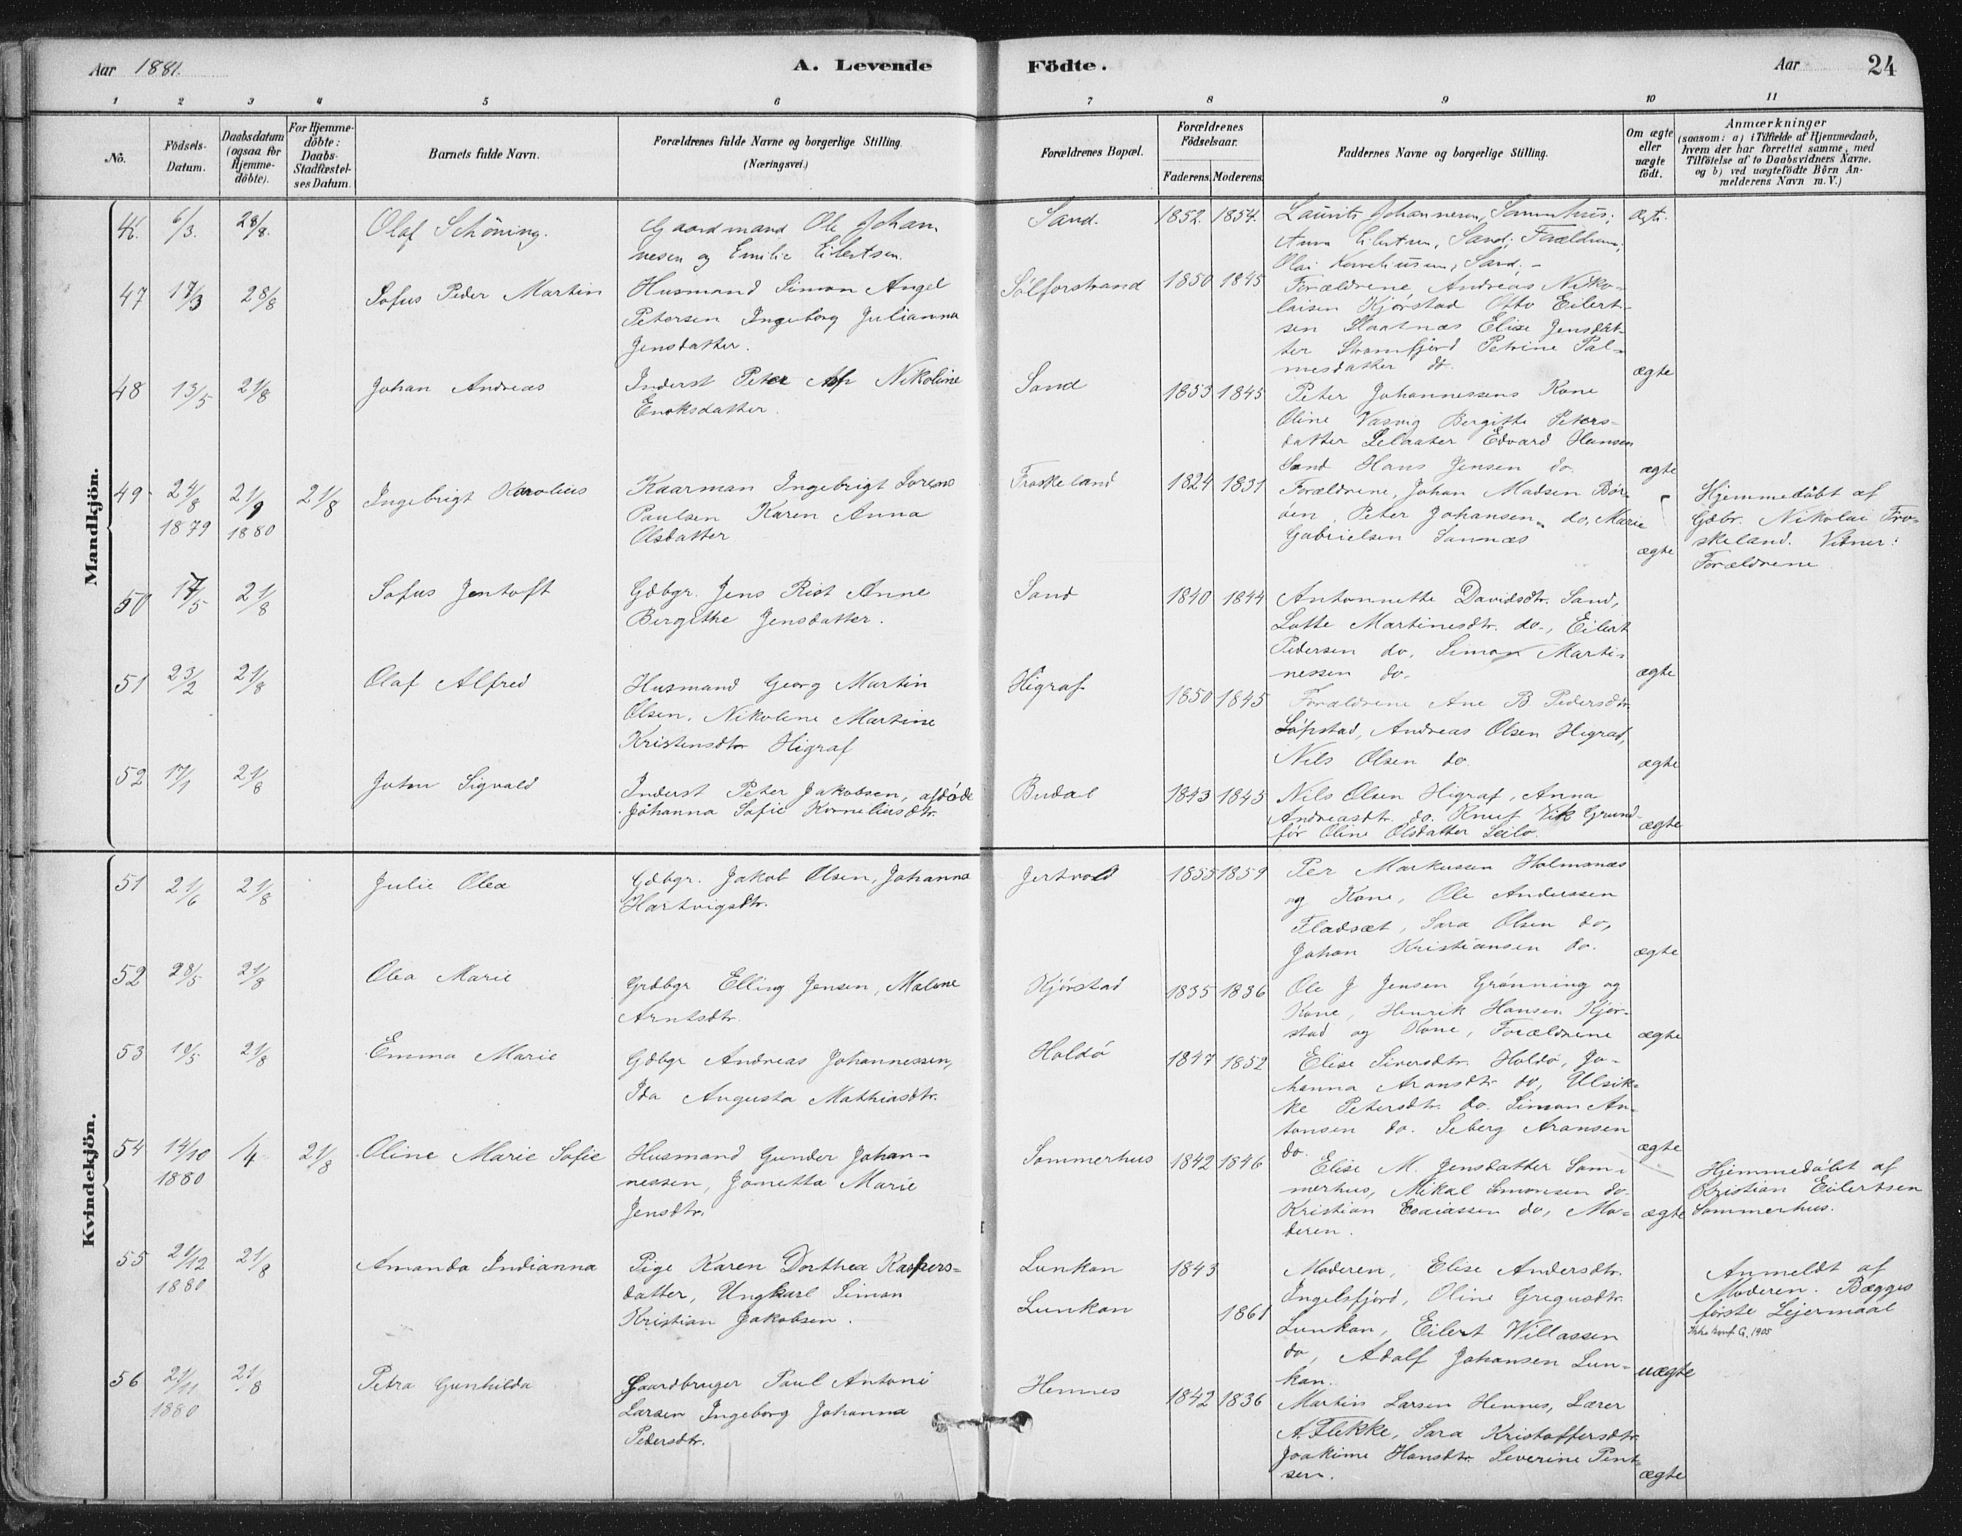 Aar 1881.
A. Levende
Födte.
Aar
24
1 2 3 4 5 6 7 8 9 10 11
No.
Födsels-
Datum.
Daabsdatum
(ogsaa for
Hjemme-
döbte).
For Hjemme-
döbte:
Daabs-
Stadfæstel-
ses Datum.
Barnets fulde Navn.
Forældrenes fulde Navne og borgerlige Stilling
(Næringsvei.)
Forældrenes Bopæl.
Forældrenes
Födselsaar.
Faderens. Moderens.
Faddernes Navne og borgerlige Stilling.
Om ægte
eller
uægte
födt.
Anmærkninger
(saasom: a) i Tilfælde af Hjemmedaab,
hvem der har forrettet samme, med
Tilföielse af to Daabsvidners Navne,
og b) ved uægtefödte Börn An-
melderens Navn m. V.)
Mandkjön.
46. 6/3. 28/8. Olaf Schöning.
Gaardmand Ole Johan
nesen og Emilie Eilertsen.
Sand. 1852. 1854.
Laurits Johannesen, Sommerhus;
Anna Eilertsen, Sand; Forældrene;
Olai Korneliussen, Sand, -
ægt.
47 17/3 28/8 Sofus Peder Martin
Husmand Simon Angel
Petersen Ingeborg Julianna
Jensdatter.
Sølforstrand 1850 1845
Forældrene Andreas Niko-
laisen Kjørstad Otto Eilert-
sen Slaatnæs Elise Jensdat-
ter Strømfjord Petrine Pal-
mesdatter do.
ægte
48 13/5 21/8 Johan Andreas
Inderst Peter Nikoline
Enoksdatter.
Sand 1853 1845
Peter Johannessens Kone
Oline Vasvig Bergitte Peters-
datter Selaater Edvard Hansen
Sand Hans Jensen do.
ægte
49 24/8 1879 21/9 1880 21/8 Ingebrigt Karolius
Kaarman Ingebrigt Lorens
Paulsen Karen Anna
Olsdatter
Froskeland 1824 1831
Forældrene, Johan Madsen Bør-
øen, Peter Johansen do, Marie
Gabrielsen Sannæs
ægte
Hjemmedøbt af
Gdbr. Nikolai Fro-
skeland. Vitner:
Forældrene
50 17/5 21/8 Sofus Jentoft
Gdbgr. Jens Rist Anne
Bergithe Jensdatter.
Sand 1840 1844
Antonnette Davidsdtr. Sand,
Lotte Martinesdtr. do., Eilert
Pedersen do, Simon Marti-
nessen do.
ægte
51 23/2 21/8 Olaf Alfred
Husmand Georg Martin
Olsen, Nikoline Martine
Kristensdtr Higraf
Higraf 1850 1845
Forældrene Ane B. Pedersdtr
Løpstad, Andreas Olsen Higraf,
Nils Olsen do
ægte
52 17/1 21/8 John Sigvald
Inderst Peter Jakobsen, afdøde
Johanna Sofie Korneliusdtr.
Budal 1843 1845
Nils Olsen Higraf, Anna
Andreasdtr. do. Knut Vik Grund-
før Oline Olsdatter Seilo.
ægte
Kvindekjön.
51 21/6 21/8 Julie Olea
Gdbgr. Jakob Olsen, Johanna
Hartvigsdtr.
Jertvold 1855 1859
Per Markussen Holmsnæs
og Kone, Ole Anderssen
Fladsæt, Sara Olsen do,
Johan Kristiansen do.
ægte
52 28/5 21/8 Olea Marie
Grdbgr Elling Jensen, Malene
Arntsdtr.
Kjørstad 1835 1836
Ole J Jensen Grønning og
Kone, Henrik Hansen Kjør-
stad og Kone, Forældrene
ægte
53 19/5 21/8 Emma Marie
Gdbgr Andreas Johannessen,
Ida Augusta Mathiasdtr.
Holdø 1847 1852
Elise Siversdtr. Holdø, Jo-
hanna Aronsdtr do, Ulrik-
ke Petersdtr. do. Simon An-
tonsen do. Seberg Aronsen
do.
ægte
54 14/10 1880 /4 21/8 Oline Marie Sofie
Husmand Gunder Johan-
nessen, Jonetta Marie
Jensdtr.
Sommerhus 1842 1846
Elise M. Jensdatter Som-
merhus, Mikal Simonsen do.
Kristian Esaiassen do, Mo-
deren.
ægte
Hjemmedøbt af
Kristian Eilertsen
Sommerhus.
55 21/12 1880 21/8 Amanda Indianna
Pige Karen Dorthea Kaspers-
datter, Ungkarl Simon
Kristian Jakobsen.
Lunkan 1843
Lunkan 1861
Moderen, Elise Andersdtr.
Ingelsfjord, Oline Gregusdtr.
Lunkan, Eilert Willassen
do, Adolf Johansen Lun-
kan.
uægte
Anmeldt af
Moderen. Begges
første Lejermaal
1905
56 21/11 1880 21/8 Petra Gunhilda
Gaardbruger Paul Antoni
Larsen Ingeborg Johanna
Pedersdtr.
Hennes 1842 1836
Martin Larsen Hennes, Lærer
A. Flekke, Sara Kristoffersdtr.
Joakime Hansdtr. Severine Pent-
sen.
ægte